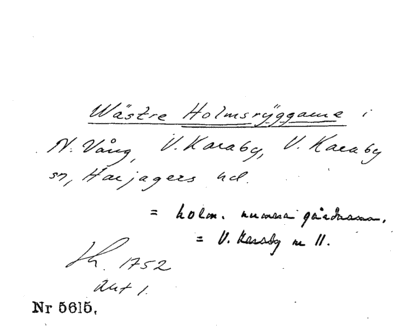 Wästre Holmsryggarne i
N. Vång, V. Karaby, V. Karaby
sn, Harjagers hd.
= holm. numera gårdarna.
= V. Karaby nr 11.
1752
akt 1.
Nr 5615,